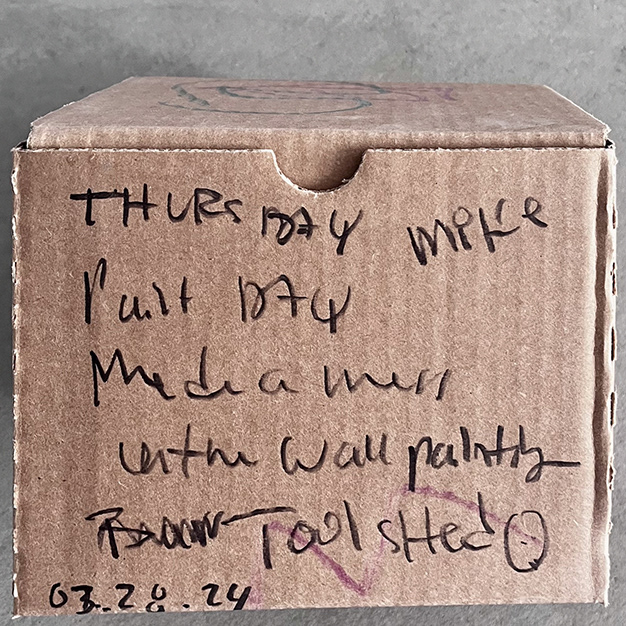 THURSDAY MIKE
Paint DAY
Made a mess
on the wall painting
Tool sHed
03.28.24